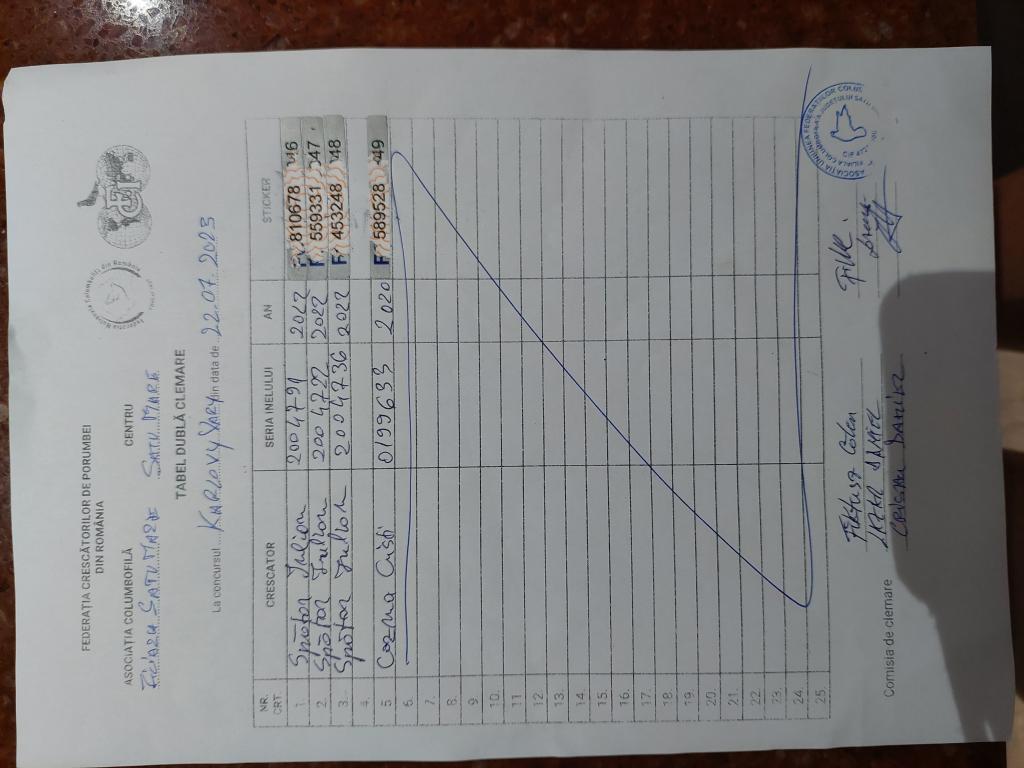 FEDERAȚIA CRESCĂTORILOR DE PORUMBEI
DIN ROMÂNIA
ASOCIAȚIA COLUMBOFILĂ CENTRU
FILIALA SATU MARE SATU MARE
TABEL DUBLĂ CLEMARE
La concursul KARLOVY VARY din data de 22.07.2023
NR. CRT. CRESCATOR SERIA INELULUI AN STICKER
1. Spătar Iulian 2004791 2022 810678 46
2. Spătar Iulian 2004722 2022 559331 47
3. Spătar Iulian 2004736 2022 453248 48
4.
5 Cozma Cristi 0199633 2020 589528 49
6.
7.
8.
9.
10.
11
12.
13.
14.
15.
16.
17.
18.
19.
20.
21.
22
23.
24.
25
Comisia de clemare